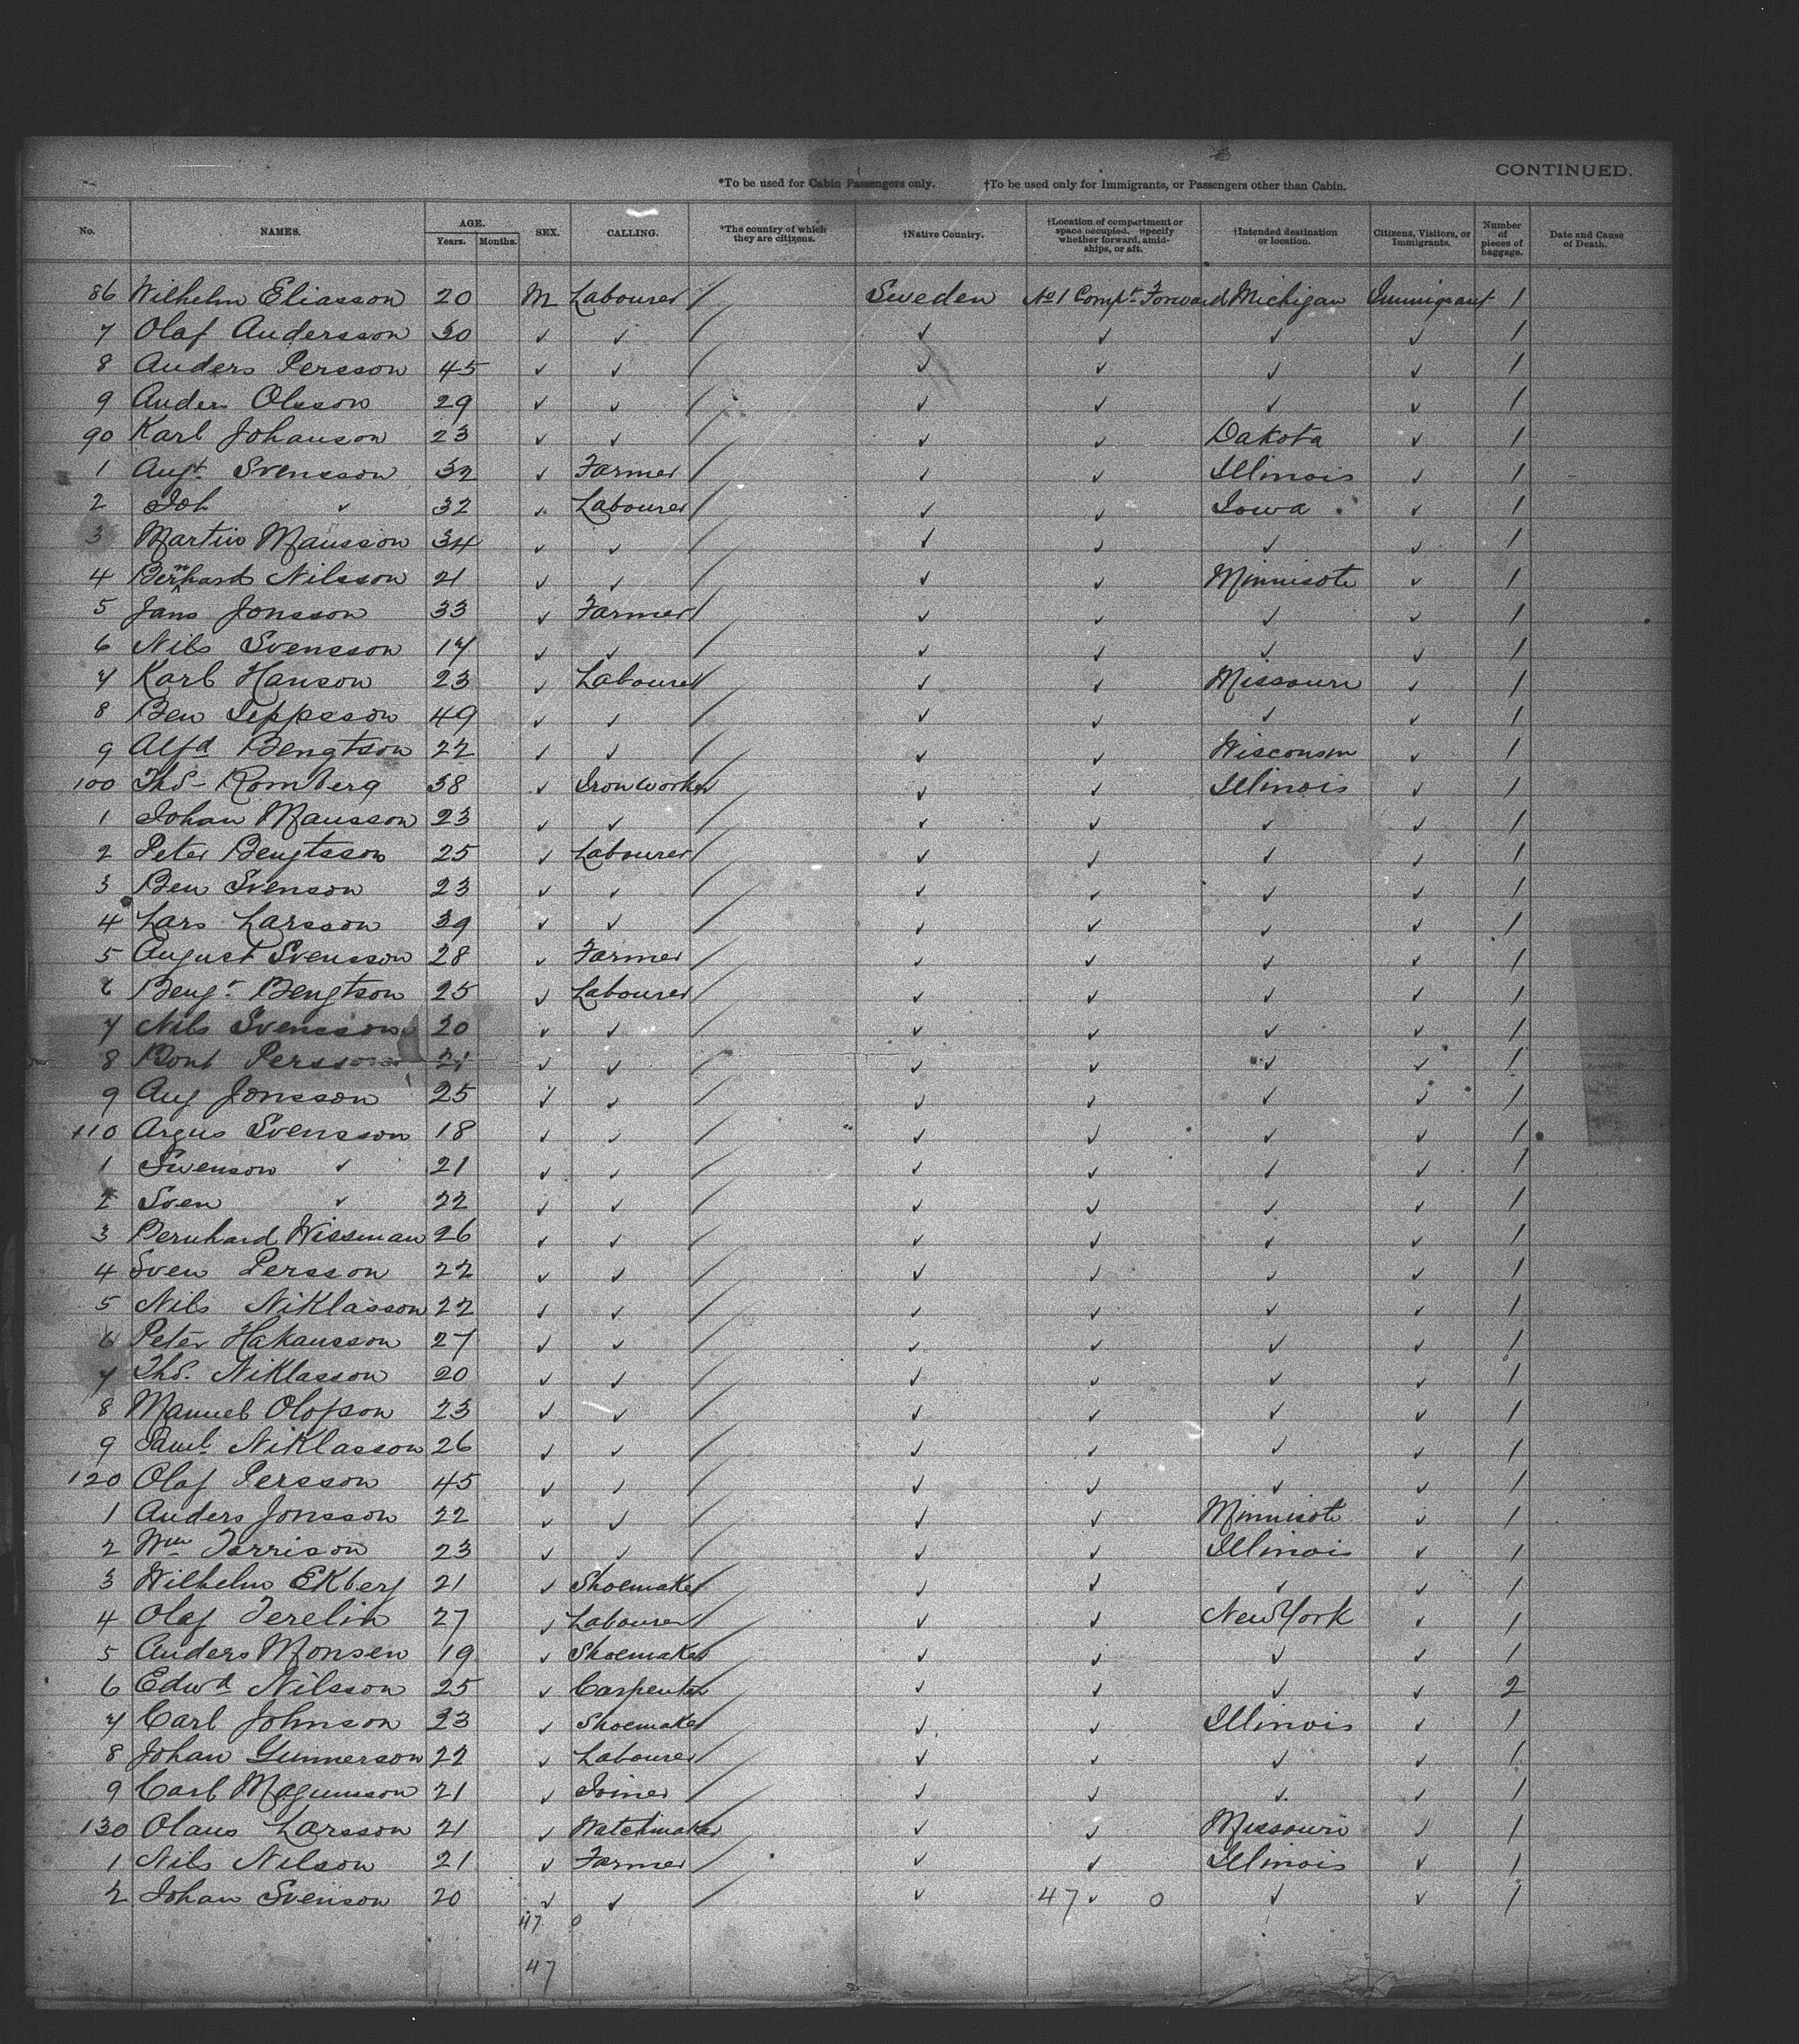 CONTINUED.
*To be used for Cabin Passengers only. †To be used only for Immigrants, or Passengers other than Cabin.
No. NAMES. AGE. Years. Months. SEX. CALLING. *The country of which they are citizens. †Native Country. †Location of compartment or space occupied. Specify whether forward, amidships, or aft. †Intended destination or location. Citizens, Visitors, or Immigrants. Number of pieces of baggage. Date and Cause of Death.
86 Wilhelm Eliasson 20 M Labourer / Sweden No 1 Compt Forward Michigan Immigrant 1
7 Olaf Andersson 30 ✓ ✓ / ✓ ✓ ✓ ✓ 1
8 Anders Persson 45 ✓ ✓ / ✓ ✓ ✓ ✓ 1
9 Anders Olsson 29 ✓ ✓ / ✓ ✓ ✓ ✓ 1
90 Karl Johanson 23 ✓ ✓ / ✓ ✓ Dakota ✓ 1
1 Augt. Svensson 32 ✓ Farmer / ✓ ✓ Illinois ✓ 1
2 Joh ✓ 32 ✓ Labourer / ✓ ✓ Iowa ✓ 1
3 Martin Mansson 34 ✓ ✓ / ✓ ✓ ✓ ✓ 1
4 Bernhard Nilsson 21 ✓ ✓ / ✓ ✓ Minnisota ✓ 1
5 Jans Jonsson 33 ✓ Farmer / ✓ ✓ ✓ ✓ 1
6 Nils Svensson 17 ✓ ✓ / ✓ ✓ ✓ ✓ 1
7 Karl Hanson 23 ✓ Labourer / ✓ ✓ Missouri ✓ 1
8 Ben Jeppsson 49 ✓ ✓ / ✓ ✓ ✓ ✓ 1
9 Alfd Bengtson 22 ✓ ✓ / ✓ ✓ Wisconsin ✓ 1
100 Thos Romberg 38 ✓ Ironworker / ✓ ✓ Illinois ✓ 1
1 Johan Mansson 23 ✓ ✓ / ✓ ✓ ✓ ✓ 1
2 Peter Bengtsson 25 ✓ Labourer / ✓ ✓ ✓ ✓ 1
3 Ben Svenson 23 ✓ ✓ / ✓ ✓ ✓ ✓ 1
4 Lars Larsson 39 ✓ ✓ / ✓ ✓ ✓ ✓ 1
5 August Svensson 28 ✓ Farmer / ✓ ✓ ✓ ✓ 1
6 Bengt Bengtson 25 ✓ Labourer / ✓ ✓ ✓ ✓ 1
7 Nils Svensson 20 ✓ ✓ / ✓ ✓ ✓ ✓ 1
8 Bont Persson 21 ✓ ✓ / ✓ ✓ ✓ ✓ 1
9 Aug Jonsson 25 ✓ ✓ / ✓ ✓ ✓ ✓ 1
110 Argus Svensson 18 ✓ ✓ / ✓ ✓ ✓ ✓ 1
1 Swenson ✓ 21 ✓ ✓ / ✓ ✓ ✓ ✓ 1
2 Sven ✓ 22 ✓ ✓ / ✓ ✓ ✓ ✓ 1
3 Bernhard Wissman 26 ✓ ✓ / ✓ ✓ ✓ ✓ 1
4 Sven Persson 22 ✓ ✓ / ✓ ✓ ✓ ✓ 1
5 Nils Niklasson 22 ✓ ✓ / ✓ ✓ ✓ ✓ 1
6 Peter Hakansson 27 ✓ ✓ / ✓ ✓ ✓ ✓ 1
7 Thos. Niklasson 20 ✓ ✓ / ✓ ✓ ✓ ✓ 1
8 Manuel Olofson 23 ✓ ✓ / ✓ ✓ ✓ ✓ 1
9 Saml Niklasson 26 ✓ ✓ / ✓ ✓ ✓ ✓ 1
120 Olaf Persson 45 ✓ ✓ / ✓ ✓ ✓ ✓ 1
1 Anders Jonsson 22 ✓ ✓ / ✓ ✓ Minnisota ✓ 1
2 Wm Torrison 23 ✓ ✓ / ✓ ✓ Illinois ✓ 1
3 Wilhelm Ekberg 21 ✓ Shoemaker / ✓ ✓ ✓ ✓ 1
4 Olaf Terelin 27 ✓ Labourer / ✓ ✓ New York ✓ 1
5 Anders Monsen 19 ✓ Shoemaker / ✓ ✓ ✓ ✓ 1
6 Edwd Nilsson 25 ✓ Carpenter / ✓ ✓ ✓ ✓ 2
7 Carl Johnson 23 ✓ Shoemaker / ✓ ✓ Illinois ✓ 1
8 Johan Gunnerson 22 ✓ Labourer / ✓ ✓ ✓ ✓ 1
9 Carl Magunson 21 ✓ Joiner / ✓ ✓ ✓ ✓ 1
130 Olaus Larsson 21 ✓ Watchmaker / ✓ ✓ Missouri ✓ 1
1 Nils Nilson 21 ✓ Farmer / ✓ ✓ Illinois ✓ 1
2 Johan Svenson 20 ✓ ✓ / ✓ 47 ✓ 0 ✓ ✓ 1
47 0
47